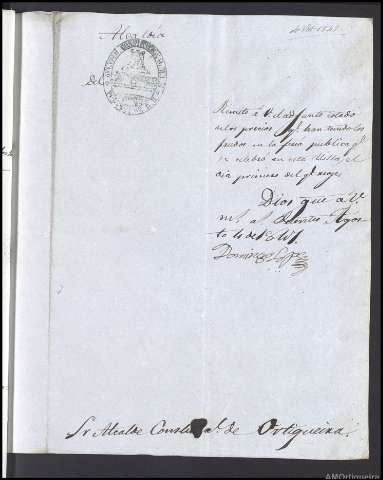 Alcaldía
del
Remito á V. el adjunto estado
de los precios q.e han tenido los
frutos en la feria publica q.e
se celebro en esta Villa, el
dia primero del q.e rige
Dios gue á V.
m.s a.s Agos-
to 4 de
Domingo
Sr Alcalde Const.l de Ortigueira.
AMOrtigueira